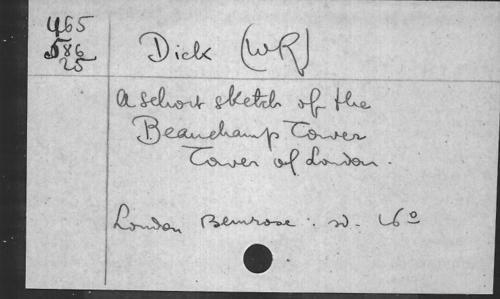 465
586
25
Dick (WR)
A short sketch of the
Beauchamp Tower
Tower of London.
London Bemrose: sd. 16º